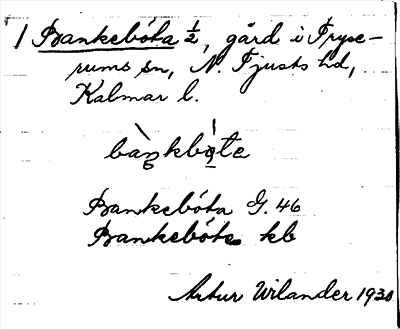 1 Bankebóta ½, gård i Fryse-
rums sn, N. Tjusts hd,
Kalmar l.
bàŋkbo̩te
Bankebóta G. 46
Bankebóta kb
Artur Wilander 1930